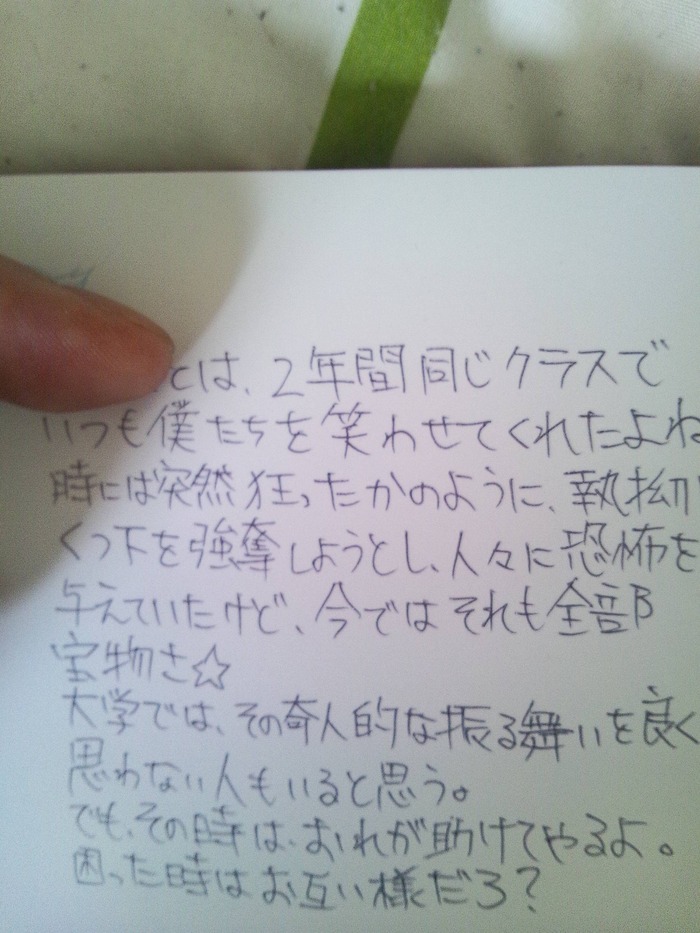 とは、2年間同じクラスで
いつも僕たちを笑わせてくれたよね
時には突然狂ったかのように、執拗に
くつ下を強奪しようとし、人々に恐怖を
与えていたけど、今ではそれも全部
宝物さ☆
大学では、その奇人的な振る舞いを良く
思わない人もいると思う。
でも、その時は、おれが助けてやるよ。
困った時はお互い様だろ？